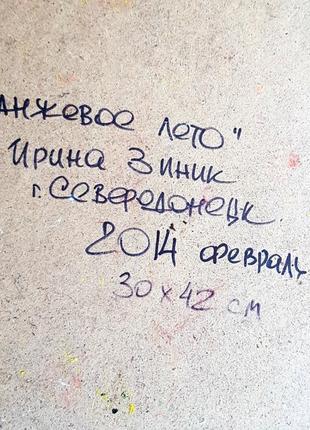 анжевое лето"
Ирина Зиник
г. Северодонецк
2014 февраль
30 x 42 см